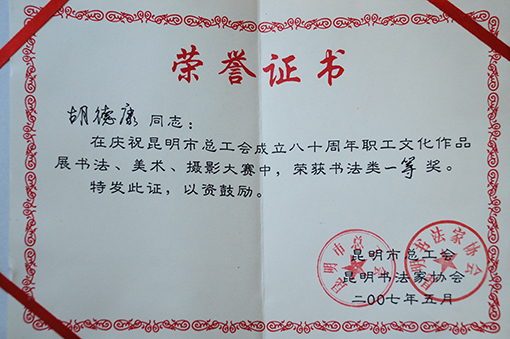 荣誉证书
胡德康 同志：
在庆祝昆明市总工会成立八十周年职工文化作品
展书法、美术、摄影大赛中，荣获书法类一等奖。
特发此证，以资鼓励。
昆明市总工会
昆明书法家协会
二00七年五月
昆明市总工会
昆明书法家协会